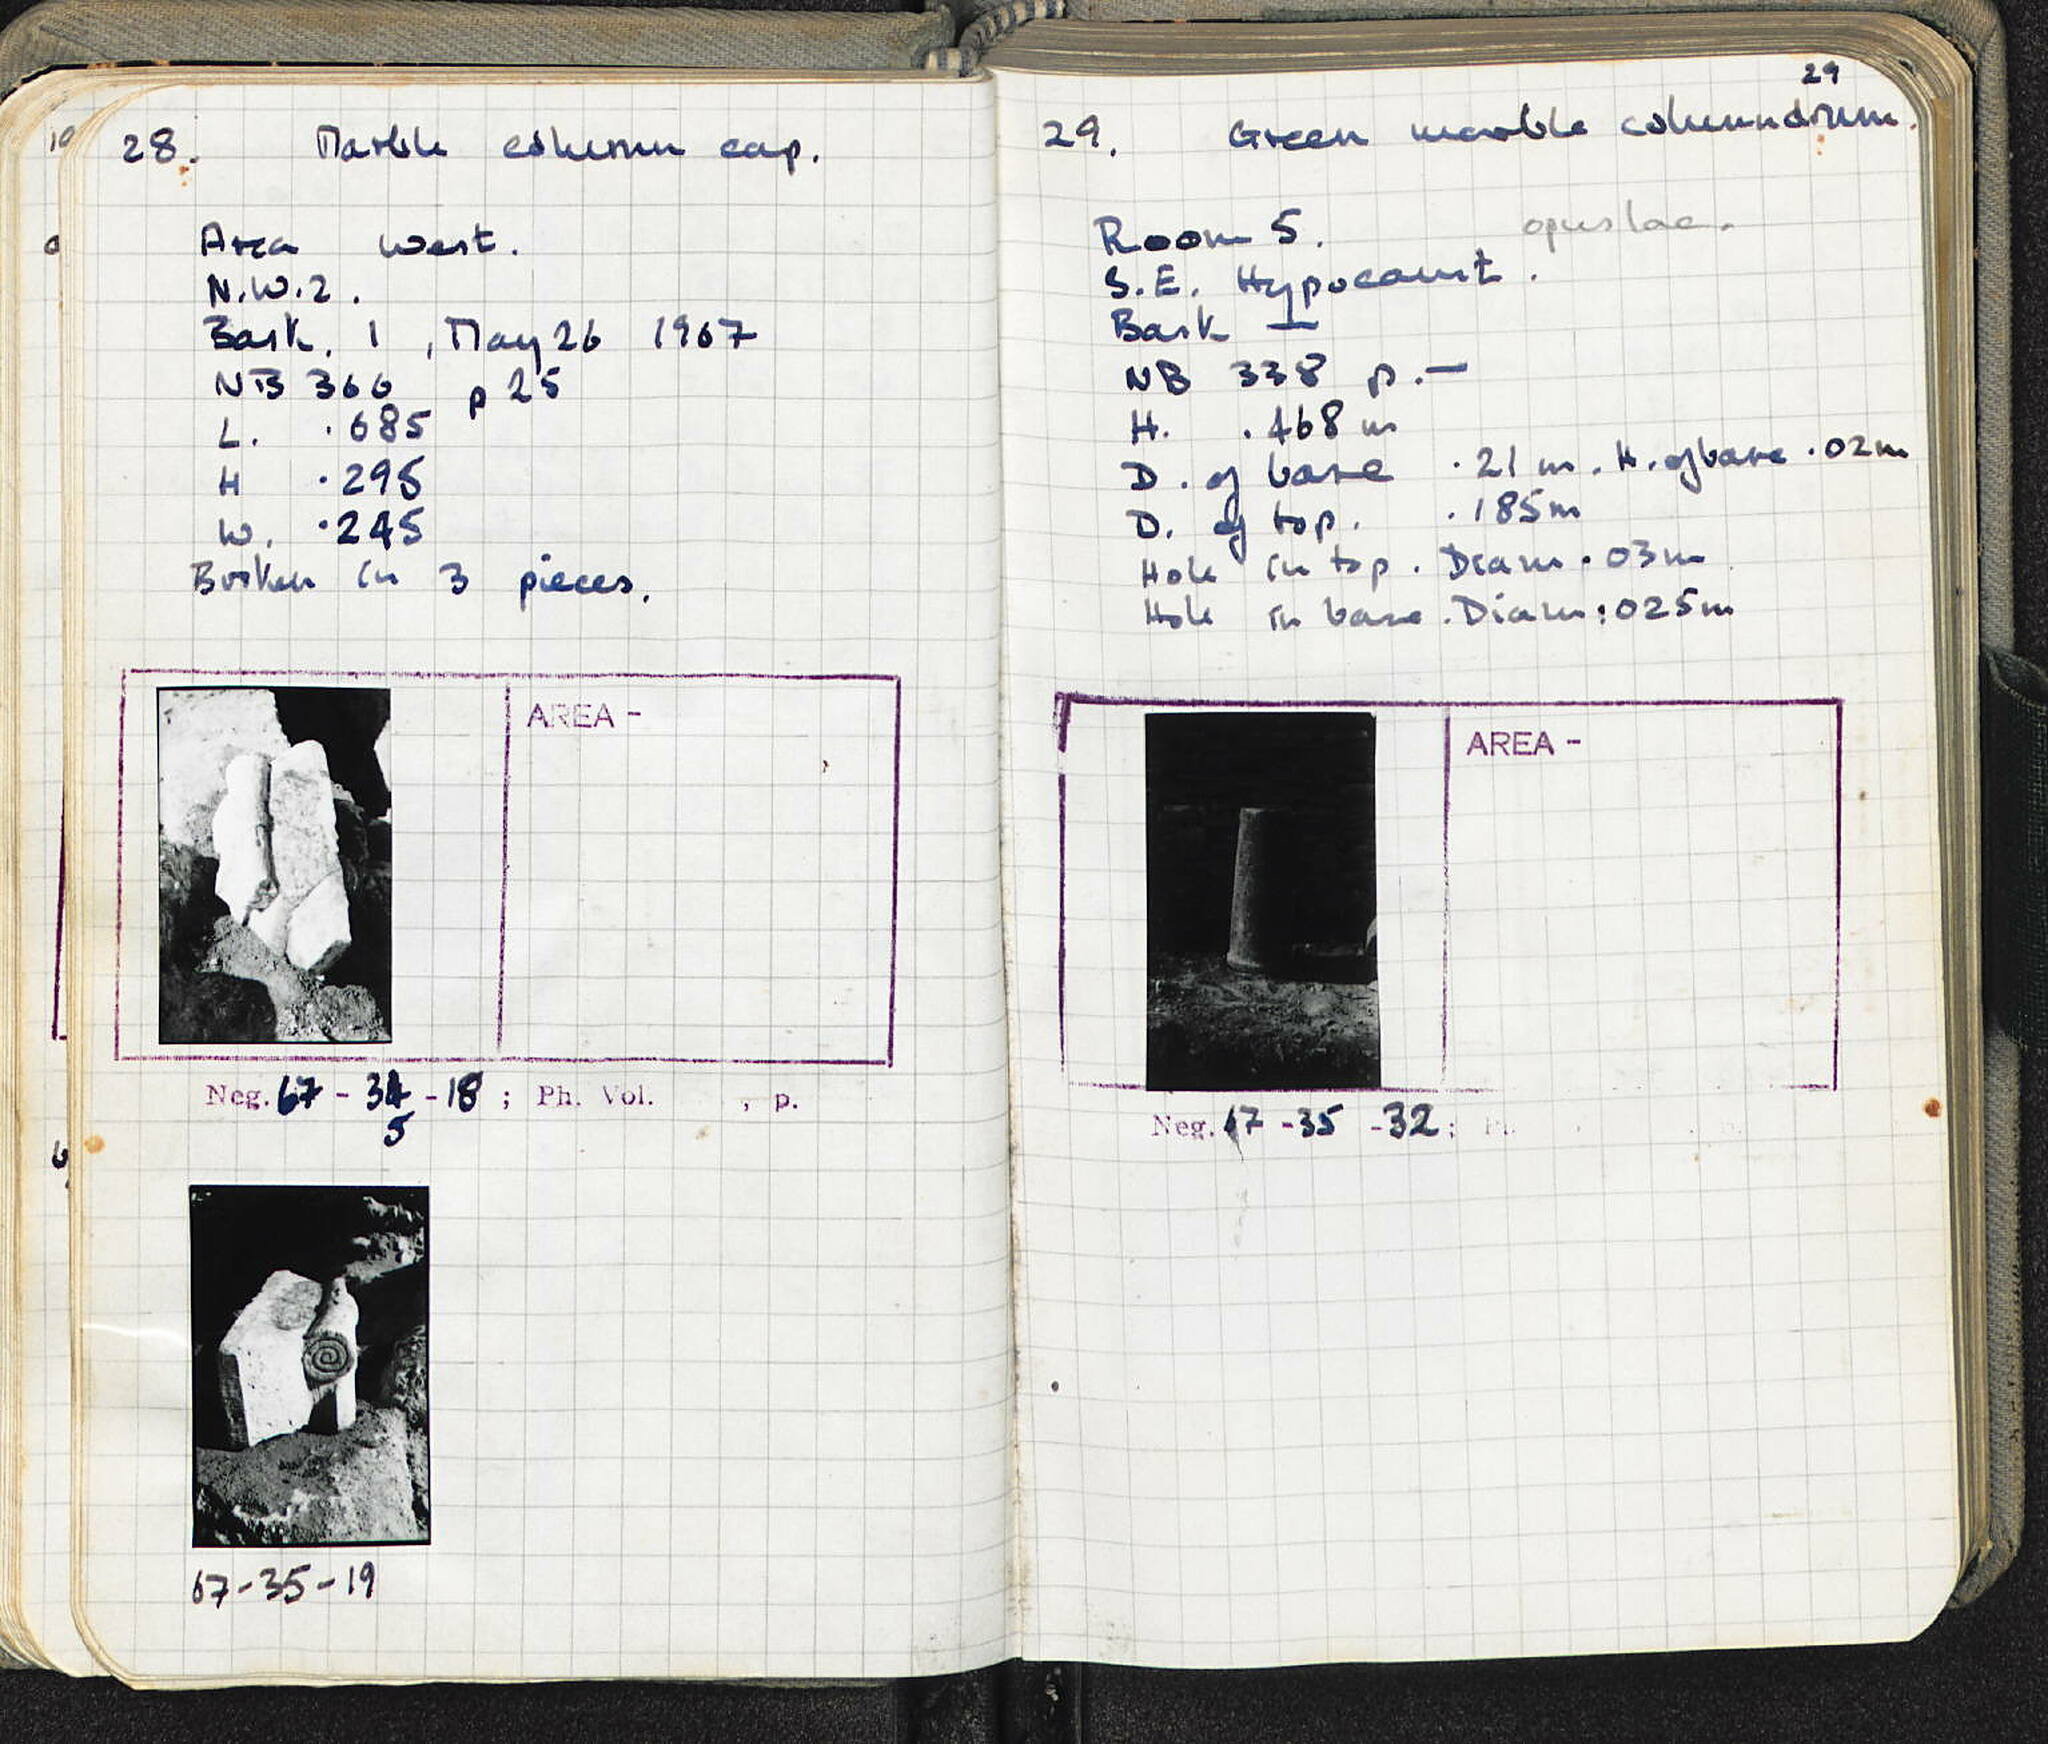 28. Marble column cap.
Area West.
N.W.2.
Bask. 1, May 26 1967
NB 366 p 25
L. .685
H .295
W. .245
Broken in 3 pieces.
AREA -
Neg. 67 - 34 - 18 ; Ph. Vol. , p.
5
67-35-19
29
29. Green marble columndrum.
Room 5.
S.E. Hypocaust.
Bask I
NB 338 p.-
H. .468 m
D. of base .21 m. H. of base .02m
D. of top. .185m
Hole in top. Diam. .03m
Hole in base. Diam: 025m
AREA -
Neg. 67 -35 -32;